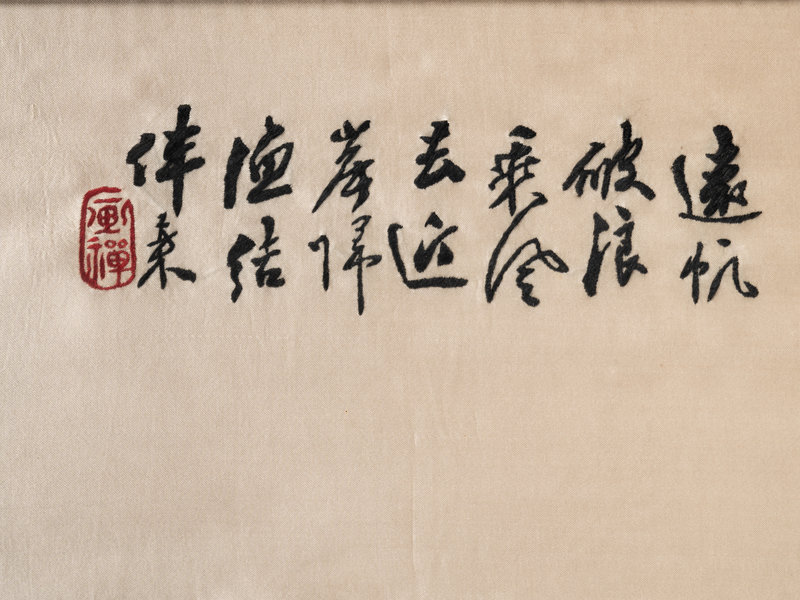 遠帆
破浪
乘風
去近
岸歸
漁結
伴來